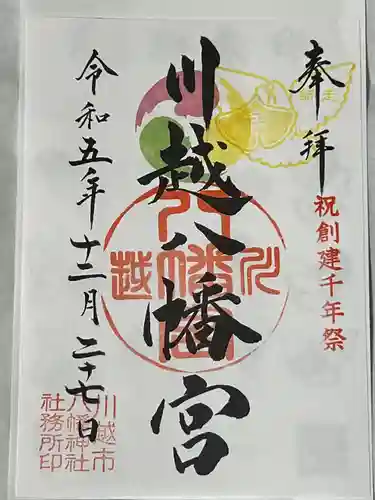 奉拝
祝創建千年祭
川越八幡宮
令和五年十二月二十七日
川越市
八幡神社
社務所印